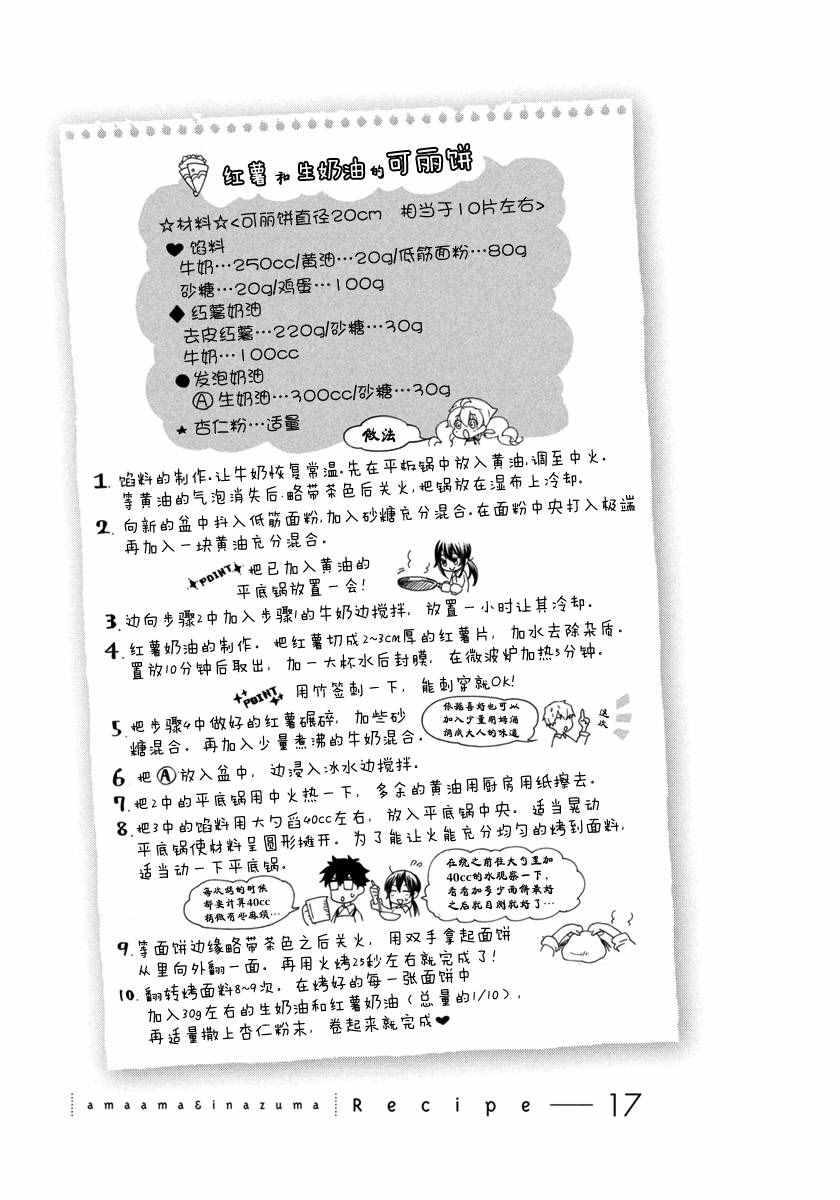 红薯和生奶油的可丽饼
☆材料☆<可丽饼直径20cm 相当于10片左右>
♥馅料
牛奶…250cc/黄油…20g/低筋面粉…80g
砂糖…20g/鸡蛋…100g
◆红薯奶油
去皮红薯…220g/砂糖…30g
牛奶…100cc
●发泡奶油
Ⓐ生奶油…300cc/砂糖…30g
★杏仁粉…适量
做法
1.馅料的制作.让牛奶恢复常温.先在平板锅中放入黄油,调至中火.
等黄油的气泡消失后.略带茶色后关火,把锅放在湿布上冷却.
2.向新的盆中抖入低筋面粉,加入砂糖充分混合.在面粉中央打入极端
再加入一块黄油充分混合.
POINT 把已加入黄油的
平底锅放置一会!
3.边向步骤2中加入步骤1的牛奶边搅拌, 放置一小时让其冷却.
4.红薯奶油的制作. 把红薯切成2~3cm厚的红薯片, 加水去除杂质.
置放10分钟后取出, 加一大杯水后封膜, 在微波炉加热5分钟.
POINT 用竹签刺一下, 能刺穿就OK!
5.把步骤4中做好的红薯碾碎, 加些砂
糖混合. 再加入少量煮沸的牛奶混合.
依据喜好也可以
加入少量朗姆酒
调成大人的味道
这次
6 把Ⓐ放入盆中, 边浸入冰水边搅拌.
7.把2中的平底锅用中火热一下, 多余的黄油用厨房用纸擦去.
8.把3中的馅料用大勺舀40cc左右, 放入平底锅中央. 适当晃动
平底锅使材料呈圆形摊开. 为了能让火能充分均匀的烤到面料,
适当动一下平底锅.
每次舀的时候
都要计算40cc
稍微有些麻烦…
在烧之前往大勺里加
40cc的水观察一下,
看看加多少面饼最好
之后就目测就好了…
9.等面饼边缘略带茶色之后关火, 用双手拿起面饼
从里向外翻一面. 再用火烤25秒左右就完成了!
10.翻转烤面料8~9次. 在烤好的每一张面饼中
加入30g左右的生奶油和红薯奶油(总量的1/10),
再适量撒上杏仁粉末, 卷起来就完成♥
amaama&inazuma Recipe — 17